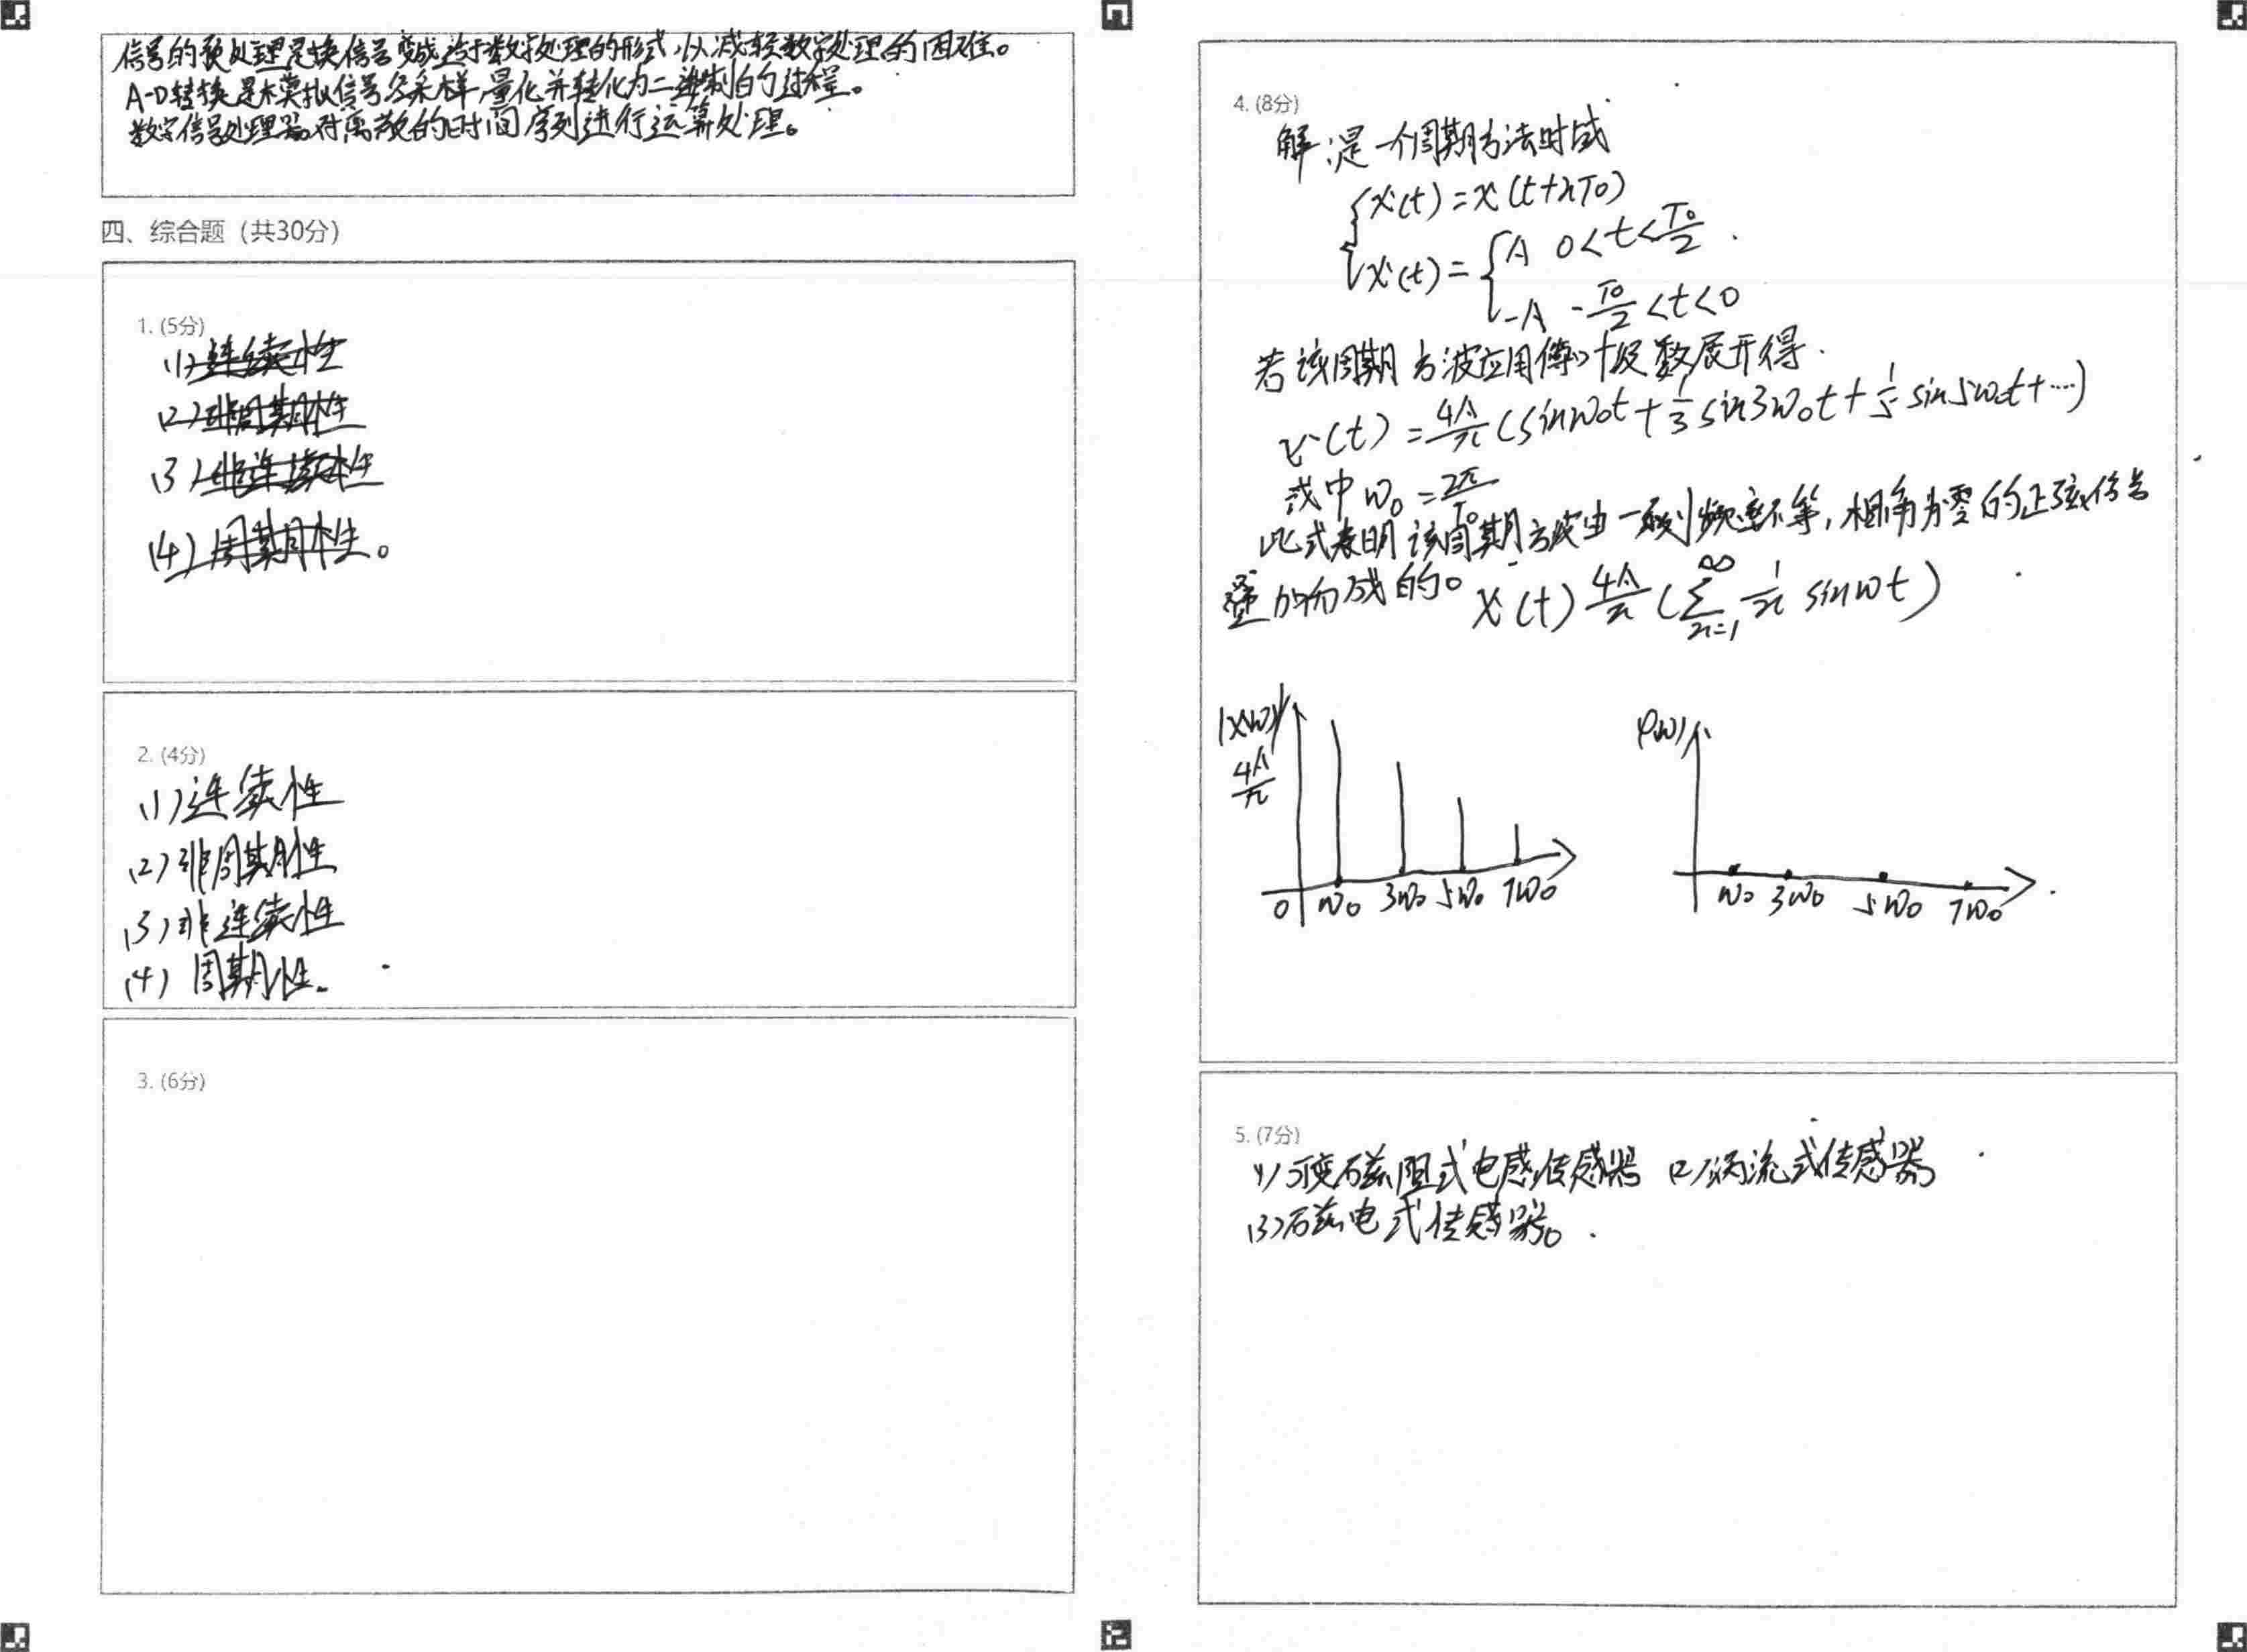 信号的预处理是换信号变成适于数字处理的形式，以减轻数字处理的困难。
A-D转换是模拟信号经采样，量化并转化为二进制的过程。
数字信号处理器对离散的时间序列进行运算处理。
四、综合题（共30分）
1. (5分)
(1) 连续性
(2) 非周期性
(3) 非连续性
(4) 周期性。
2. (4分)
(1) 连续性
(2) 非周期性
(3) 非连续性
(4) 周期性。
3. (6分)
4. (8分)
解：是一个周期方法时域
x(t)=x(t+nT0)
x(t)= { A 0<t<T0/2
-A -T0/2<t<0
若该周期方波应用傅叶级数展开得.
x(t)=4A/π(sinω0t+1/3 sin3ω0t+1/5 sin5ω0t+…)
式中ω0=2π/T0
此式表明该周期方波由一系列频率不等，相角为零的正弦信号
叠加而成的。x(t) 4A/π (∑ n=1 ∞ 1/n sinωt)
|X(ω)| φ(ω)
4A/π
0 ω0 3ω0 5ω0 7ω0 ω0 3ω0 5ω0 7ω0
5. (7分)
(1) 可变磁阻式电感传感器 (2) 涡流式传感器
(3) 磁电式传感器。